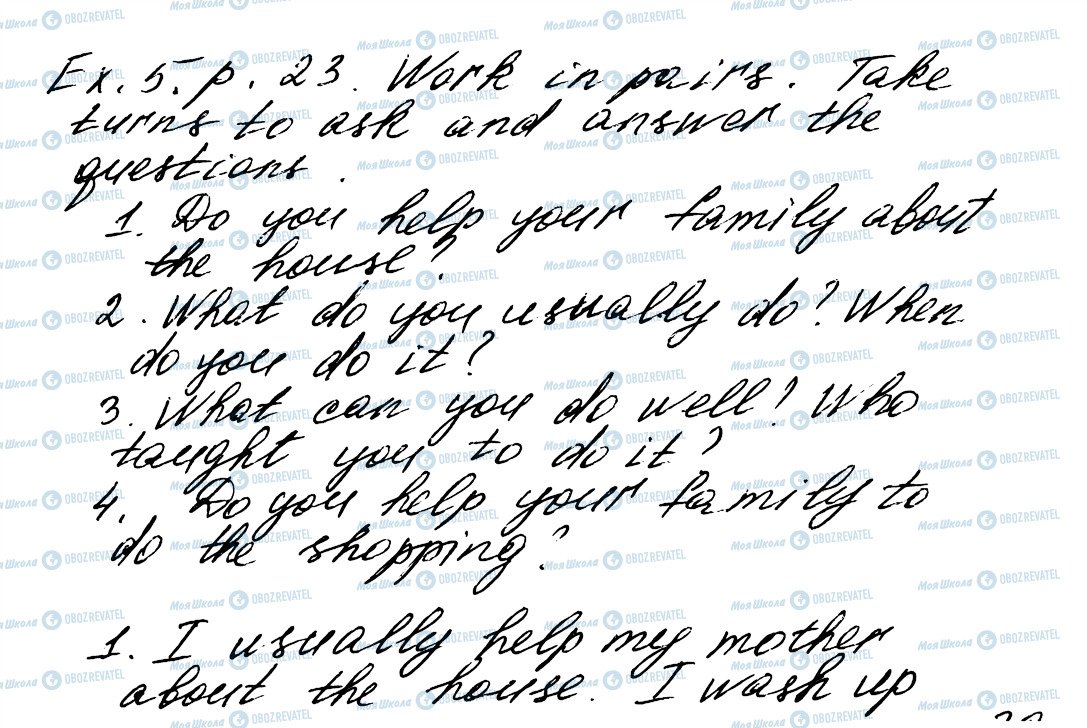 Ex. 5. p. 23. Work in pairs. Take
turns to ask and answer the
questions.
1. Do you help your family about
the house?
2. What do you usually do? When
do you do it?
3. What can you do well? Who
taught you to do it?
4. Do you help your family to
do the shopping?
1. I usually help my mother
about the house. I wash up